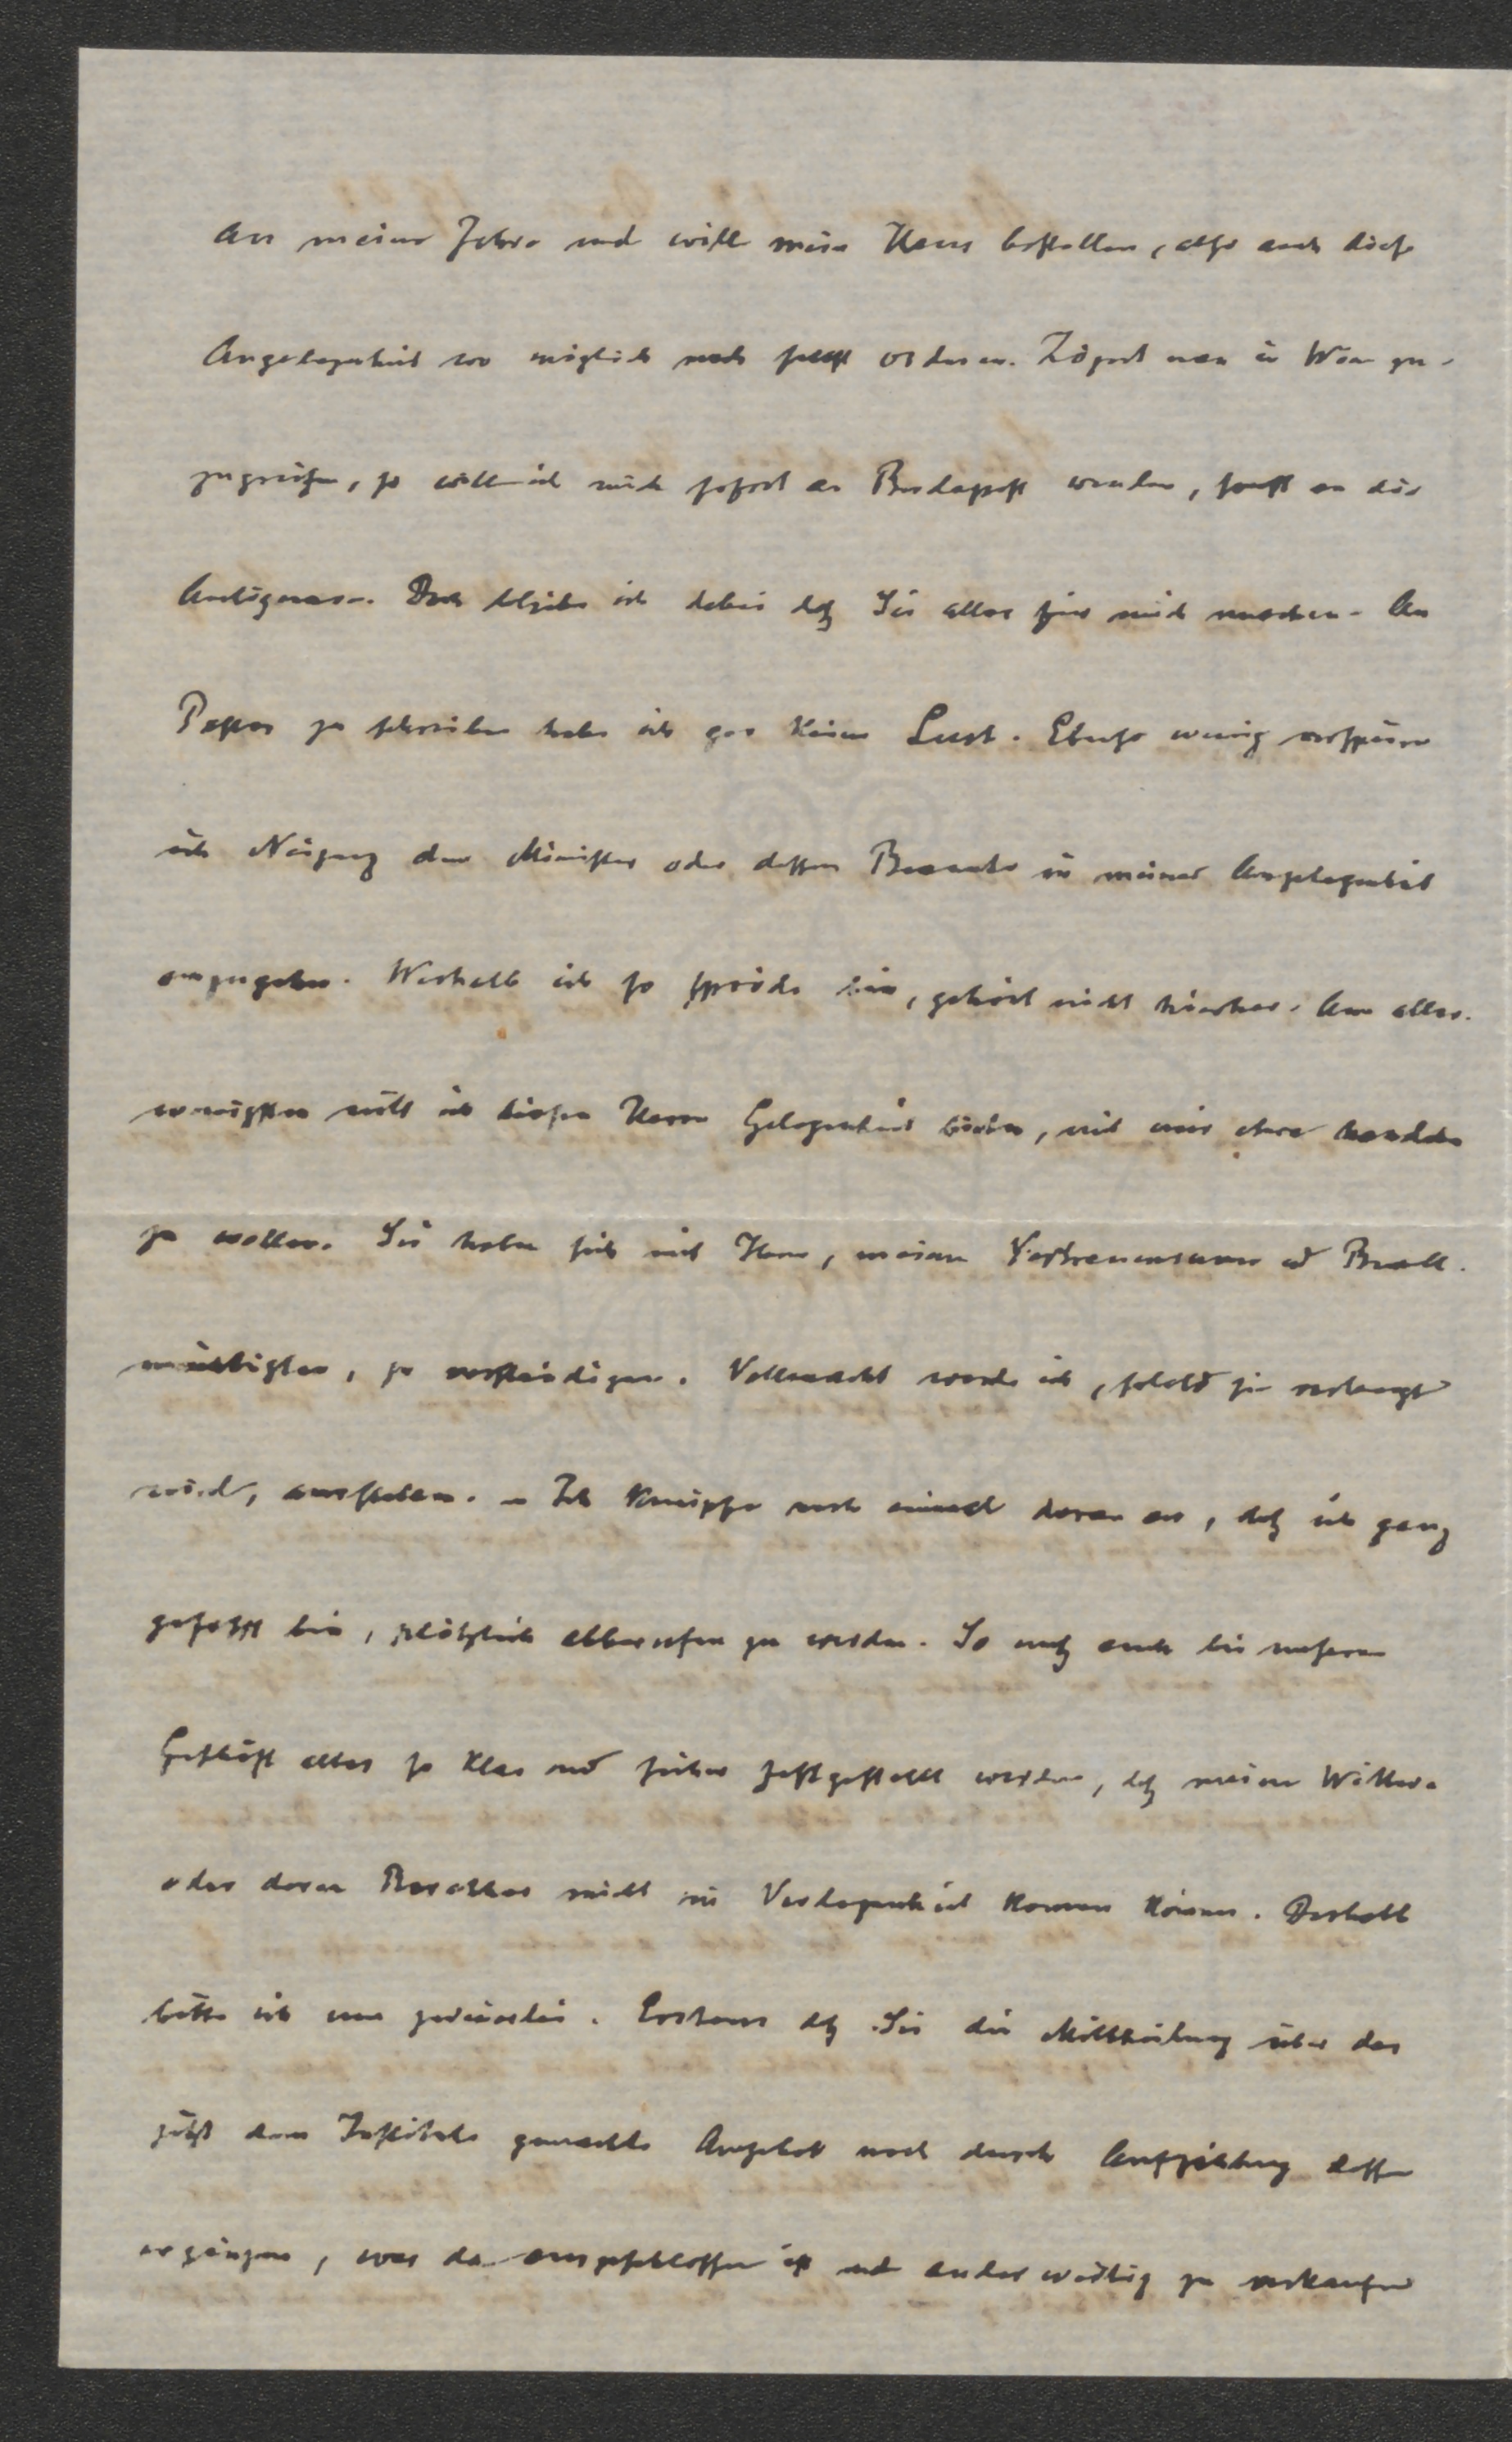 an meine Jahre und will mein Haus bestellen, also auch diese
Angelegenheit wo möglich noch selbst ordnen. Zögert man in Wien zu-
zugreifen, so will ich mich sofort an Budapest wenden, sonst an die
Antiquare. Doch bleibe ich dabei daß Sie alles für mich machen. An
zu schreiben habe ich gar keine Lust. Ebenso wenig verspüre
ich Neigung den Minister oder dessen Beamte in meiner Angelegenheit
anzugehen. Weshalb ich so spröde bin, gehört nicht hierher. Am aller-
wenigsten will ich diesen Herrn Gelegenheit bieten, mit mir etwa handeln
zu wollen. Sie haben sich mit Ihnen, meinem Vertrauensmann
zu verständigen. Vollmacht werde ich, sobald sie verlangt
wird, ausstellen. – Ich knüpfe noch einmal daran an, daß ich ganz
gefaßt bin, plötzlich abberufen zu werden. So muß auch bei unserem
Geschäft alles so klar und sicher festgestellt werden, daß meine Wittwe
oder deren Berather nicht in Verlegenheit kommen können. Deshalb
bitte ich um zweierlei. Erstens daß Sie die Mittheilung über das
jetzt dem Institute gemachte Angebot noch durch dessen
ergänzen, was da ausgeschlossen ist und anderweitig zu verkaufen